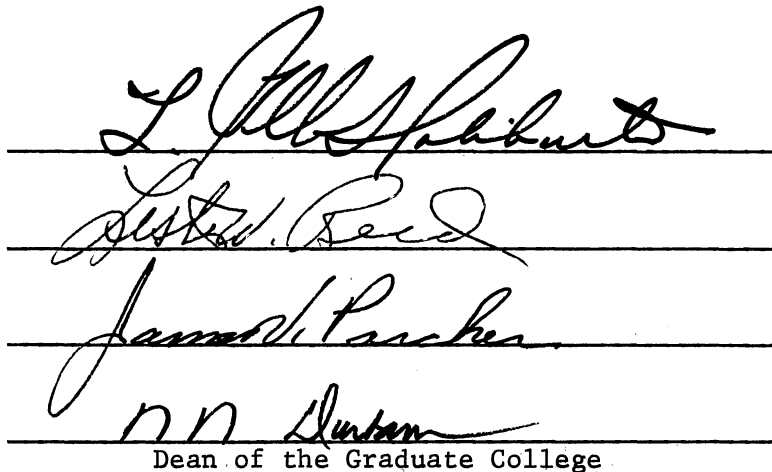 L.
Lester W. Reed
James V. Parcher
N N Durham
Dean of the Graduate College